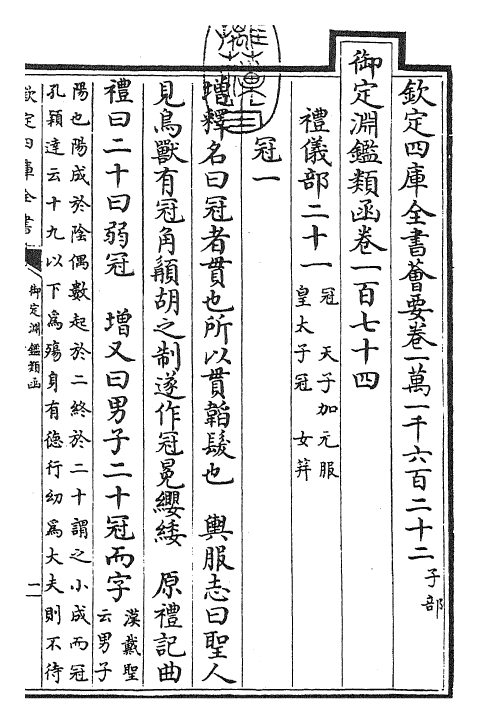 欽定四庫全書薈要卷一萬一千六百二十二 子部
御定淵鑑類函卷一百七十四
禮儀部二十一 冠 天子加元服
皇太子冠 女筓
冠一
增釋名曰冠者貫也所以貫韜髮也 輿服志曰聖人
見鳥獸有冠角䪼胡之制遂作冠冕纓緌 原禮記曲
禮曰二十曰弱冠 增又曰男子二十冠而字 漢戴聖
云男子
陽也陽成於陰偶數起於二終於二十謂之小成而冠
孔穎達云十九以下為殤身有德行幼為大夫則不待
欽定四庫全書
御定淵鑑類函
一